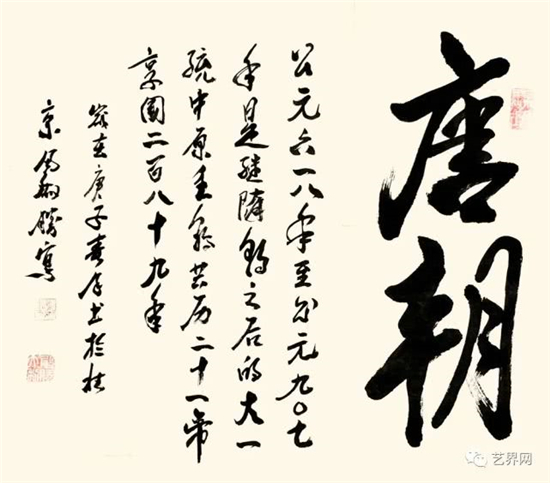 唐朝
公元六一八年至公元九〇七
年是继隋朝之后的大一
统中原王朝共历二十一帝
享国二百八十九年
岁在庚子春书於桂
京胜寫
艺界网